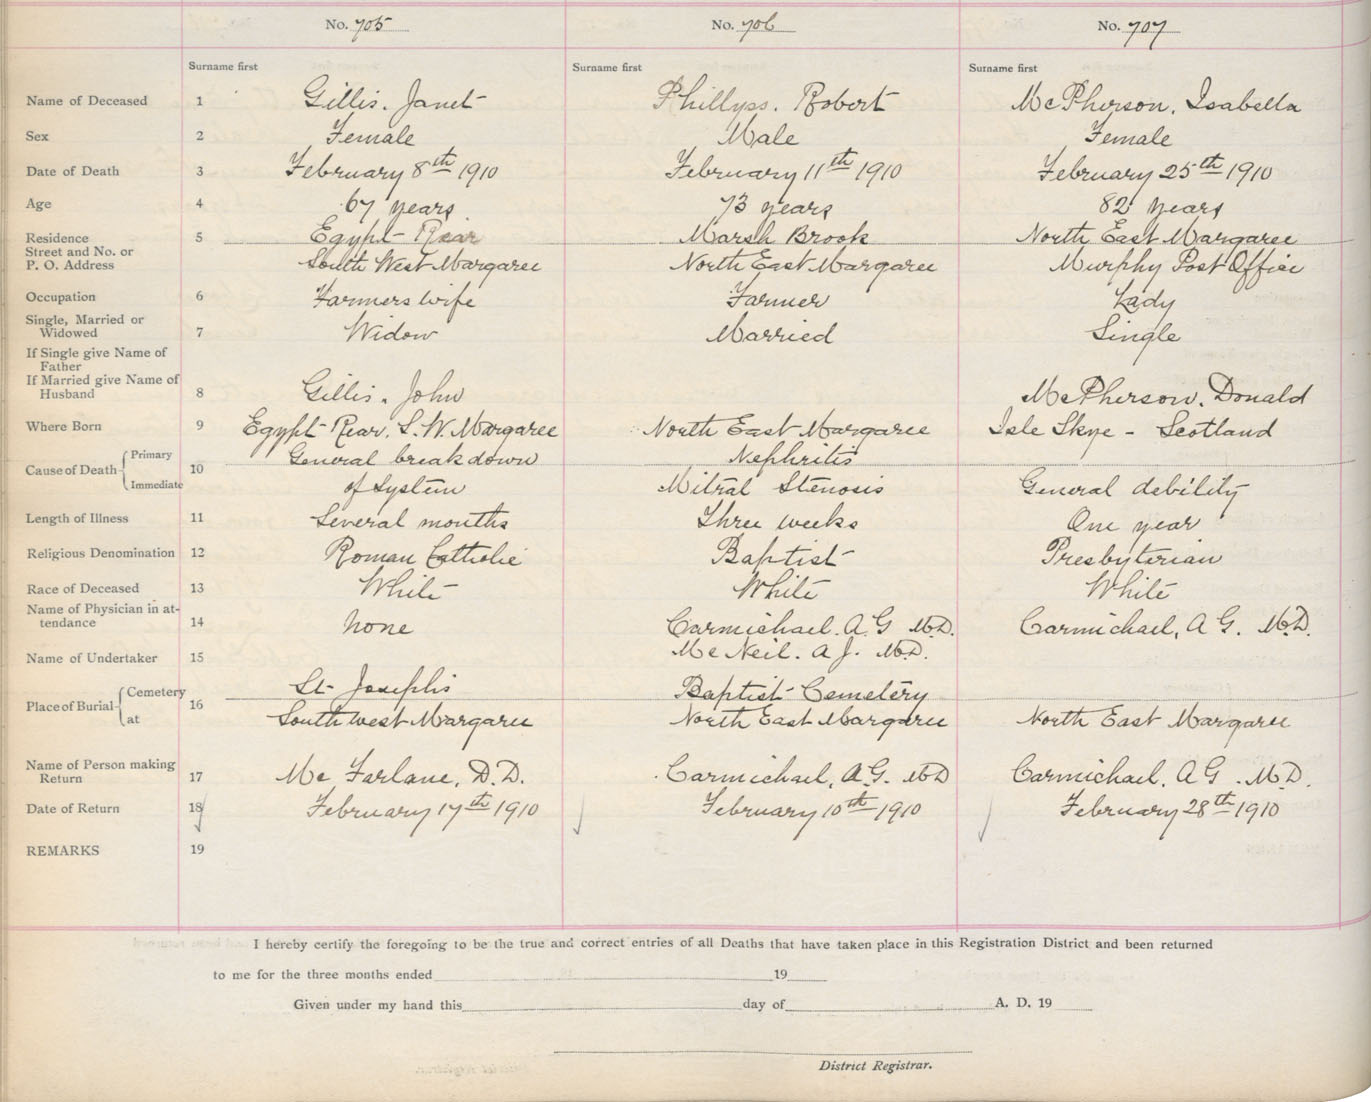 No. 705 No. 706 No. 707
Surname first Surname first Surname first
Name of Deceased 1 Gillis. Janet Phillyss. Robert McPherson, Isabella
Sex 2 Female Male Female
Date of Death 3 February 8th 1910 February 11th 1910 February 25th 1910
Age 4 67 years 73 years 82 years
Residence 5 Egypt-Rear Marsh Brook North East Margaree
Street and No. or
P. O. Address South West Margaree North East Margaree Murphy Post Office
Occupation 6 Farmers wife Farmer Lady
Single, Married or
Widowed 7 Widow Married Single
If Single give Name of
Father
If Married give Name of
Husband 8 Gillis. John McPherson. Donald
Where Born 9 Egypt-Rear. S.W. Margaree North East Margaree Isle Skye - Scotland
Primary General breakdown Nephritis
Cause of Death 10
Immediate of system Mitral Stenosis General debility
Length of Illness 11 Several months Three weeks One year
Religious Denomination 12 Roman Catholic Baptist Presbyterian
Race of Deceased 13 White White White
Name of Physician in at-
tendance 14 None Carmichael. A G M.D. Carmichael, A G. M.D.
Name of Undertaker 15 McNeil. A J. M.D.
Cemetery St Josephs Baptist Cemetery
Place of Burial 16
at South west Margaree North East Margaree North East Margaree
Name of Person making
Return 17 Mc Farlane, D.D. Carmichael, A.G. MD Carmichael. A G. M.D.
Date of Return 18 February 17th 1910 February 10th 1910 February 28th 1910
REMARKS 19
I hereby certify the foregoing to be the true and correct entries of all Deaths that have taken place in this Registration District and been returned
to me for the three months ended 19
Given under my hand this day of A. D. 19
District Registrar.